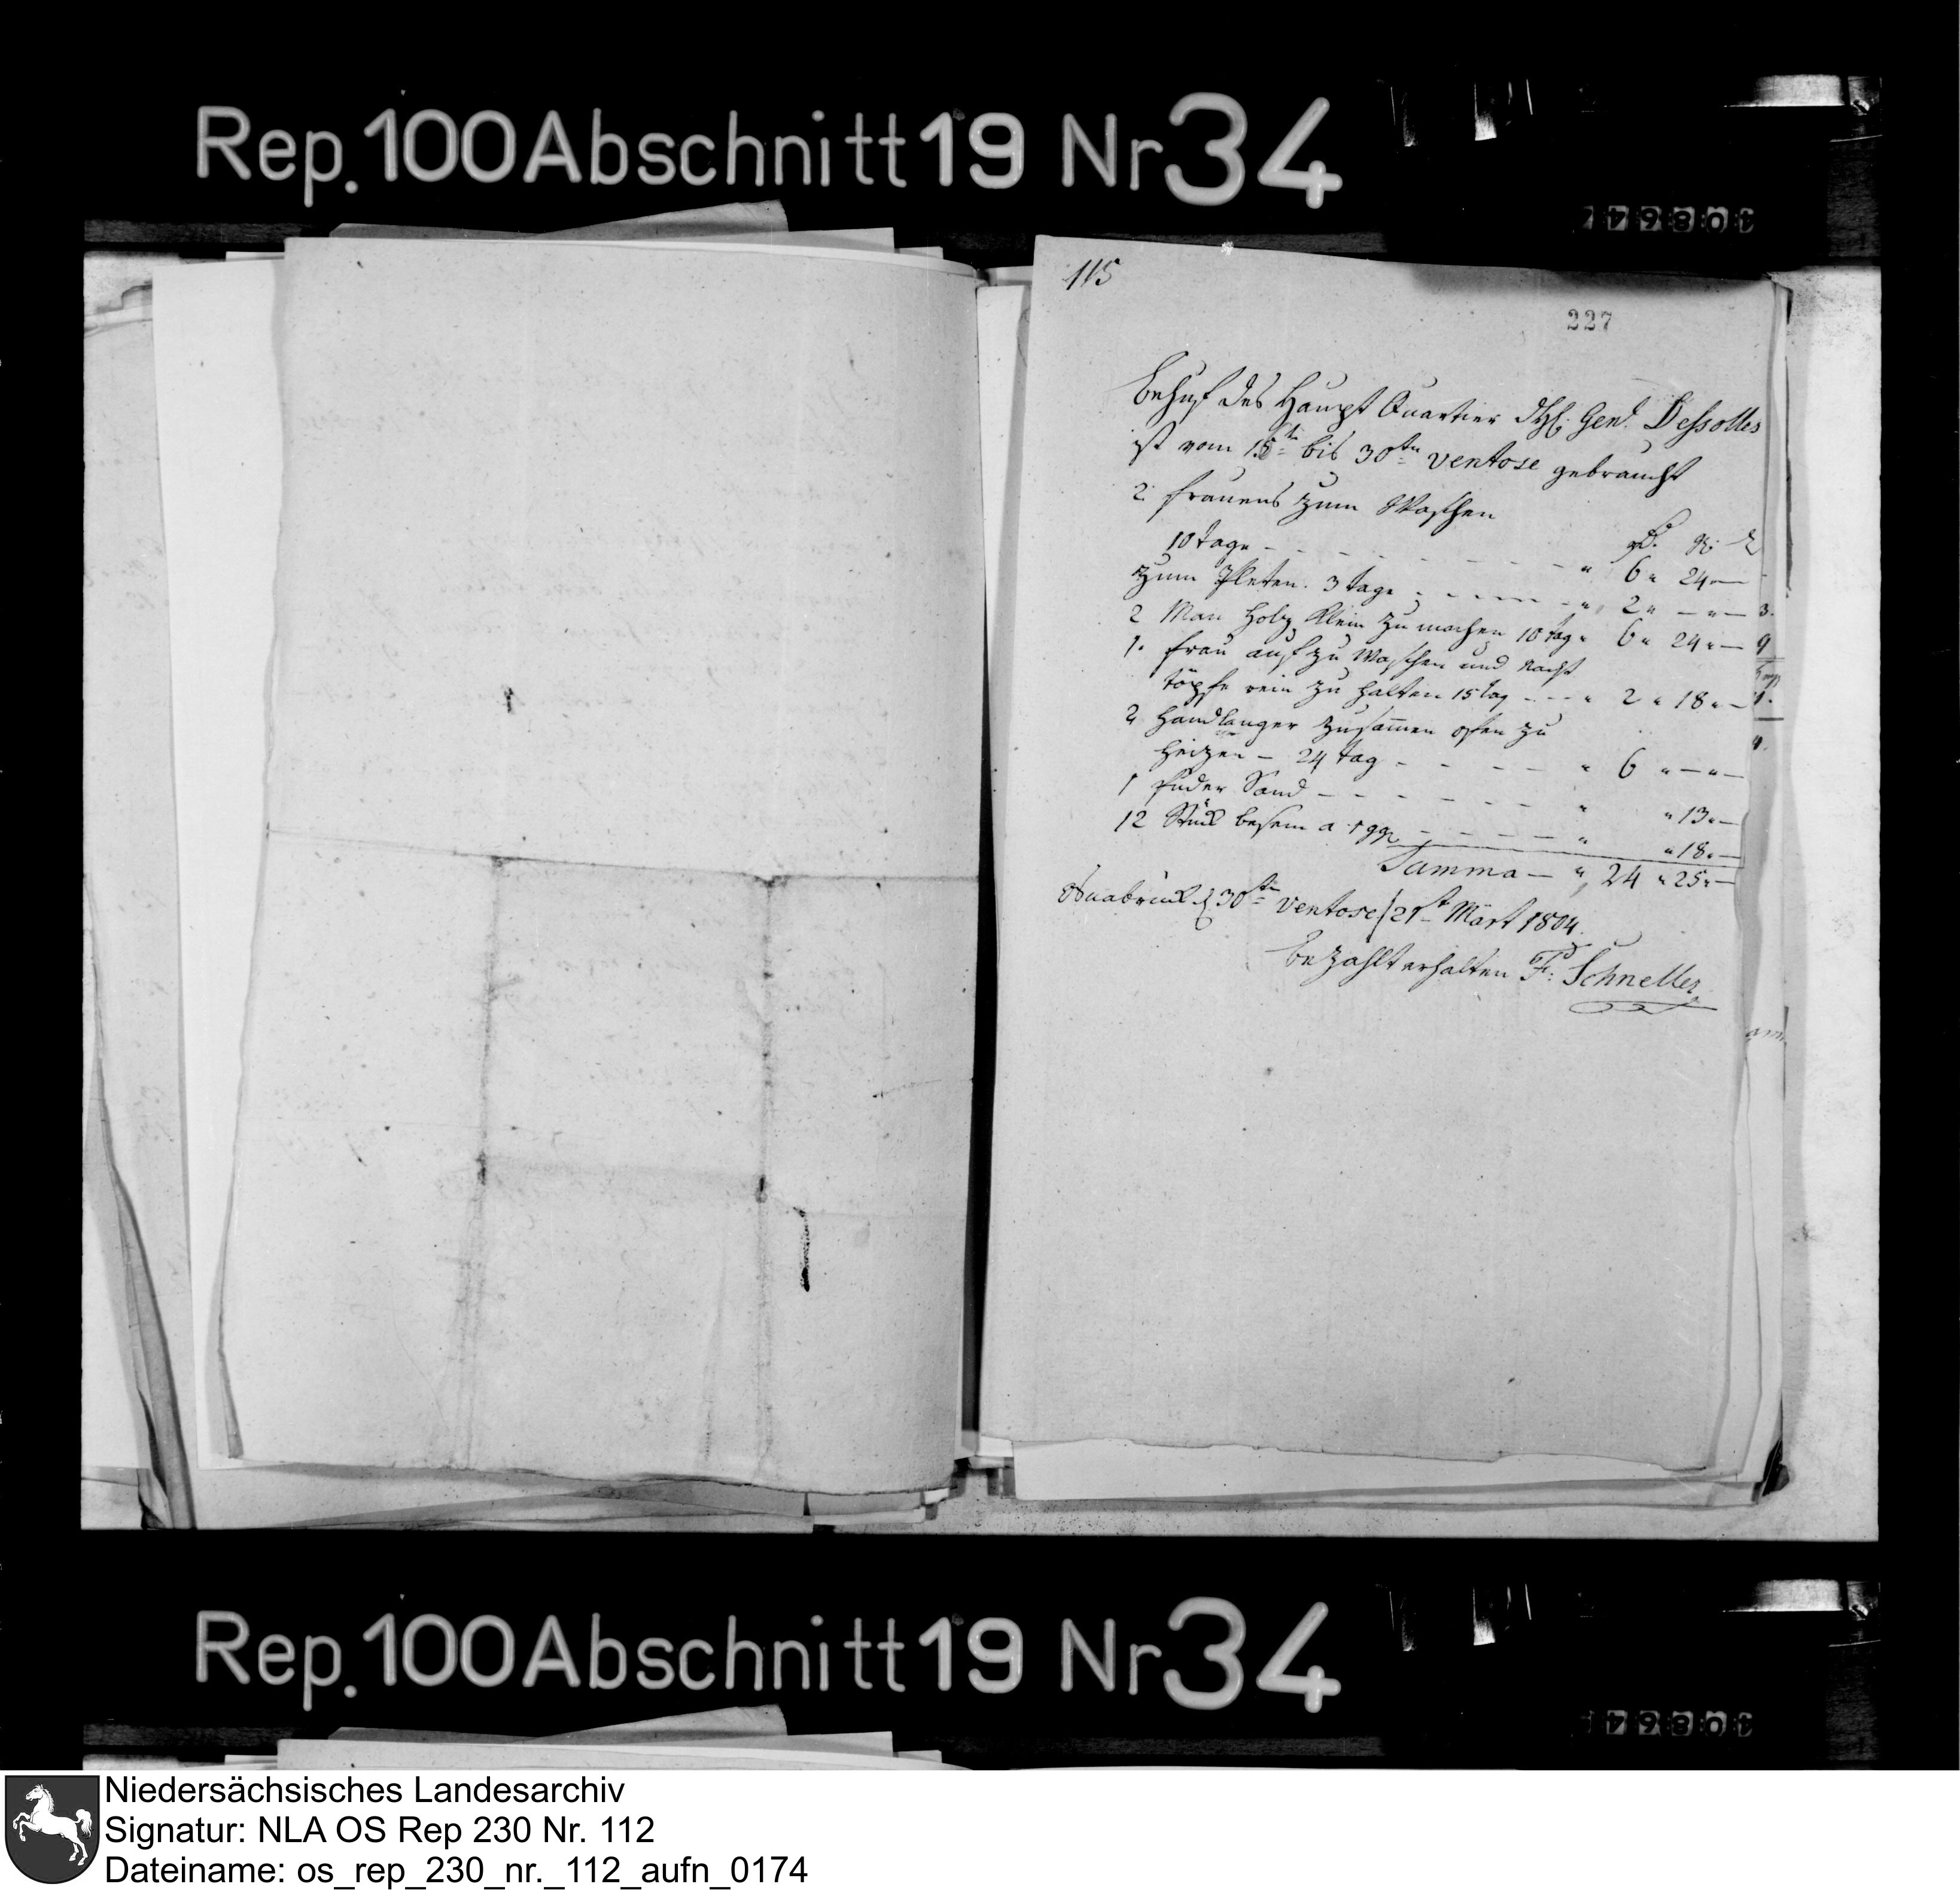 Rep. 100 Abschnitt 19 Nr 34
115
227
Behuf des Haupt Quartier Genl. Dessolles
ist vom 15tn bis 30ten ventose gebraucht
2 frauens zum Waschen
10 tage - - - - - - - - " 6 " 24 " —
zum Pletten. 3 tage - - - - - " 2 " — " —
2 Man Holz klein zu machen 10 tag " 6 " 24 " —
1. frau auf zu Waschen und Nacht
töpfe rein zu halten 15 tag - - - " 2 " 18 " —
2 Handlanger zusam̅en ofen zu
heizen – 24 tag - - - - - " 6 " — " —
1 fuder Sand - - - - - - - " " 13 " —
12 Stück besem a 1 ggr - - - - " " 18 " —
Summa — " 24 " 25 " —
Osnabrück d 30ten ventose / 21st Märt 1804.
bezahlt erhalten F: Schneller
Rep. 100 Abschnitt 19 Nr 34
Niedersächsisches Landesarchiv
Signatur: NLA OS Rep 230 Nr. 112
Dateiname: os_rep_230_nr._112_aufn_0174